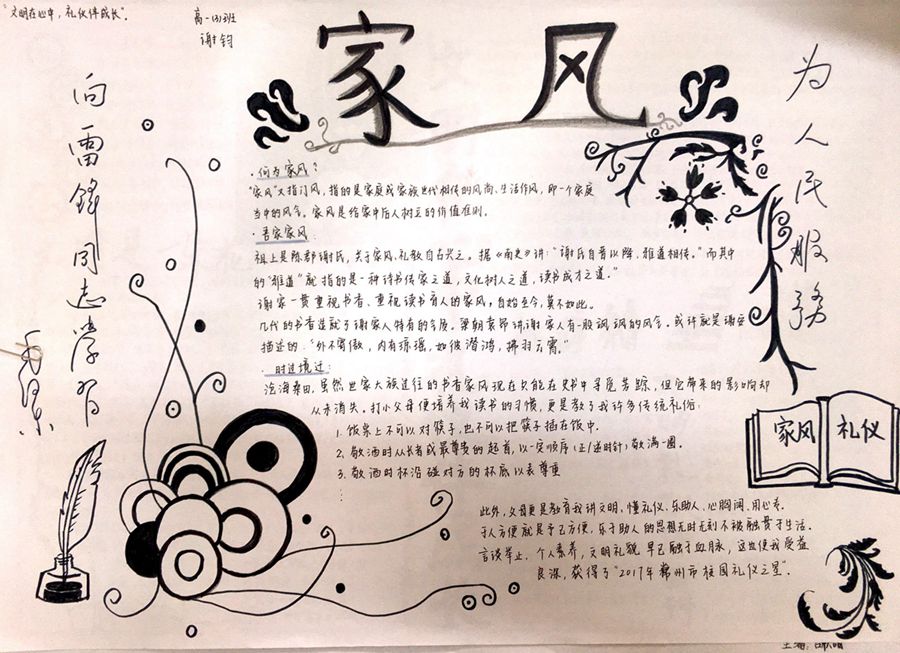 "文明在心中，礼仪伴成长"。
高一(3)班
谢钧
家风
向雷锋同志学习
毛泽东
为人民服务
·何为家风？
"家风"又指门风，指的是家庭或家族世代相传的风尚、生活作风，即一个家庭
当中的风气。家风是给家中后人树立的价值准则。
·吾家家风
祖上是陈郡谢氏，关于家风、礼教自古兴之。据《南史》讲："谢氏自晋以降，雅道相传。"而其中
的"雅道"就指的是一种诗书传家之道，文化树人之道，读书成才之道。
谢家一贯重视书香、重视读书育人的家风，自始至今，莫不如此。
几代的书香造就了谢家人特有的气质。梁朝袁昂讲，谢家人有一股飒飒的风气。或许就是谢安
描述的："外不寄傲，内有琼瑶，如彼潜鸿，拂羽云霄。"
·时过境迁：
沧海桑田，虽然世家大族过往的书香家风现在只能在史书中寻觅苦踪，但它带来的影响却
从未消失。打小父母便培养我读书的习惯，更是教了我许多传统礼俗：
1. 饭桌上不可以对筷子，也不可以把筷子插在饭中.
2. 敬酒时从长者或最尊贵的起首，以一定顺序(正/逆时针)敬满一圈.
3. 敬酒时杯沿碰对方的杯底以表尊重
⋮
家风 礼仪
此外，父母更是教育我讲文明、懂礼仪、乐助人、心胸阔、用心专。
于人方便就是予己方便，乐于助人的思想无时无刻不被融贯于生活。
言谈举止，个人素养，文明礼貌早已融于血脉，这也使我受益
良深，获得了"2017年常州市校园礼仪之星".
主编：